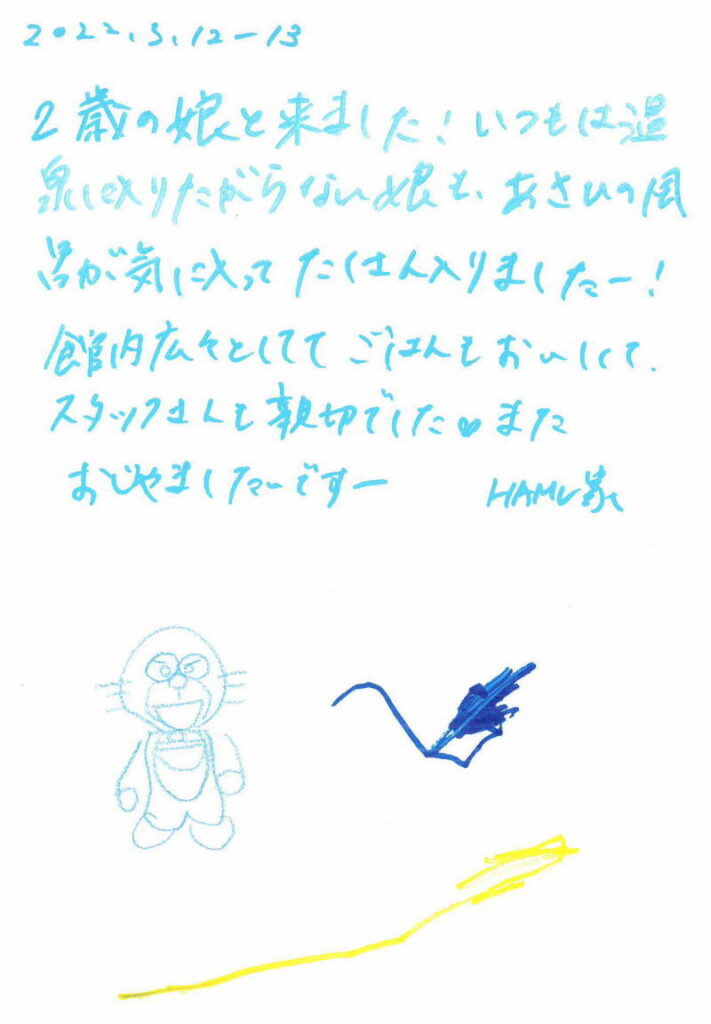 2022.3.12-13
2歳の娘と来ました！いつもは温
泉に入りたがらない娘も、あさひの風
呂が気に入ってたくさん入りましたー！
館内広々としてて ごはんもおいしくて、
スタッフさんも親切でした♥また
おじゃましたいですー